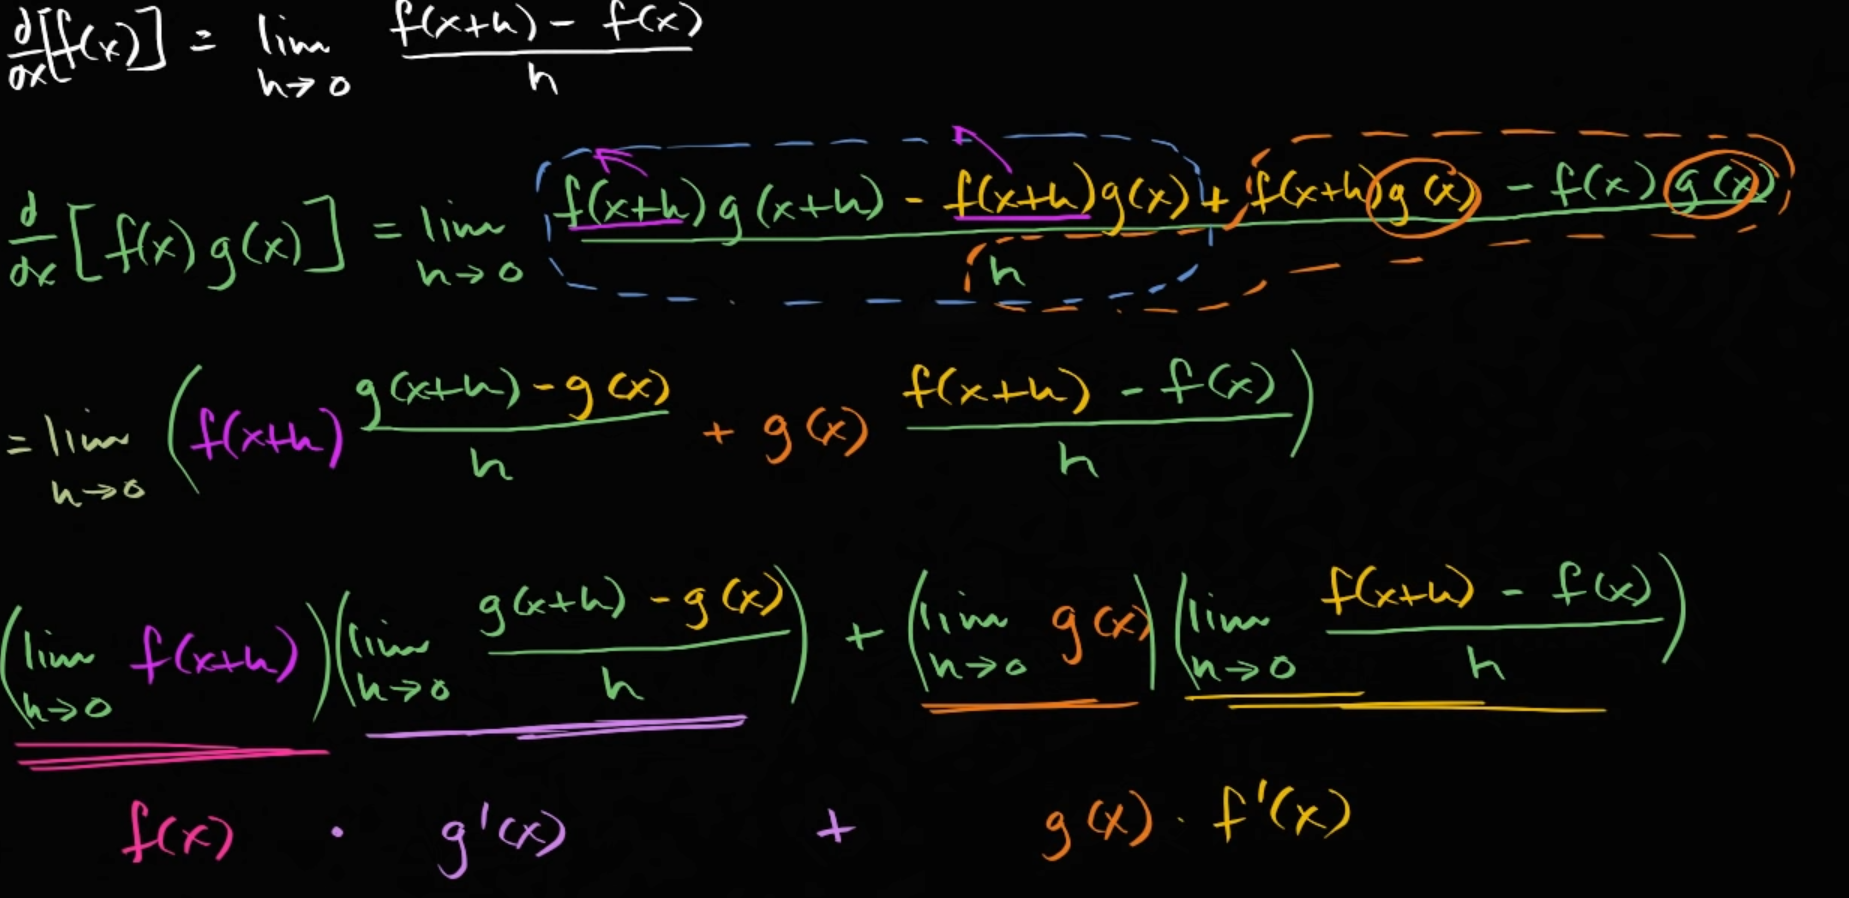 d/dx [f(x)] = lim h→0 (f(x+h) - f(x))/h
d/dx [f(x) g(x)] = lim h→0 (f(x+h) g(x+h) - f(x+h) g(x) + f(x+h) g(x) - f(x) g(x))/h
= lim h→0 (f(x+h) (g(x+h) - g(x))/h + g(x) (f(x+h) - f(x))/h)
(lim h→0 f(x+h)) (lim h→0 (g(x+h) - g(x))/h) + (lim h→0 g(x)) (lim h→0 (f(x+h) - f(x))/h)
f(x) · g'(x) + g(x) · f'(x)